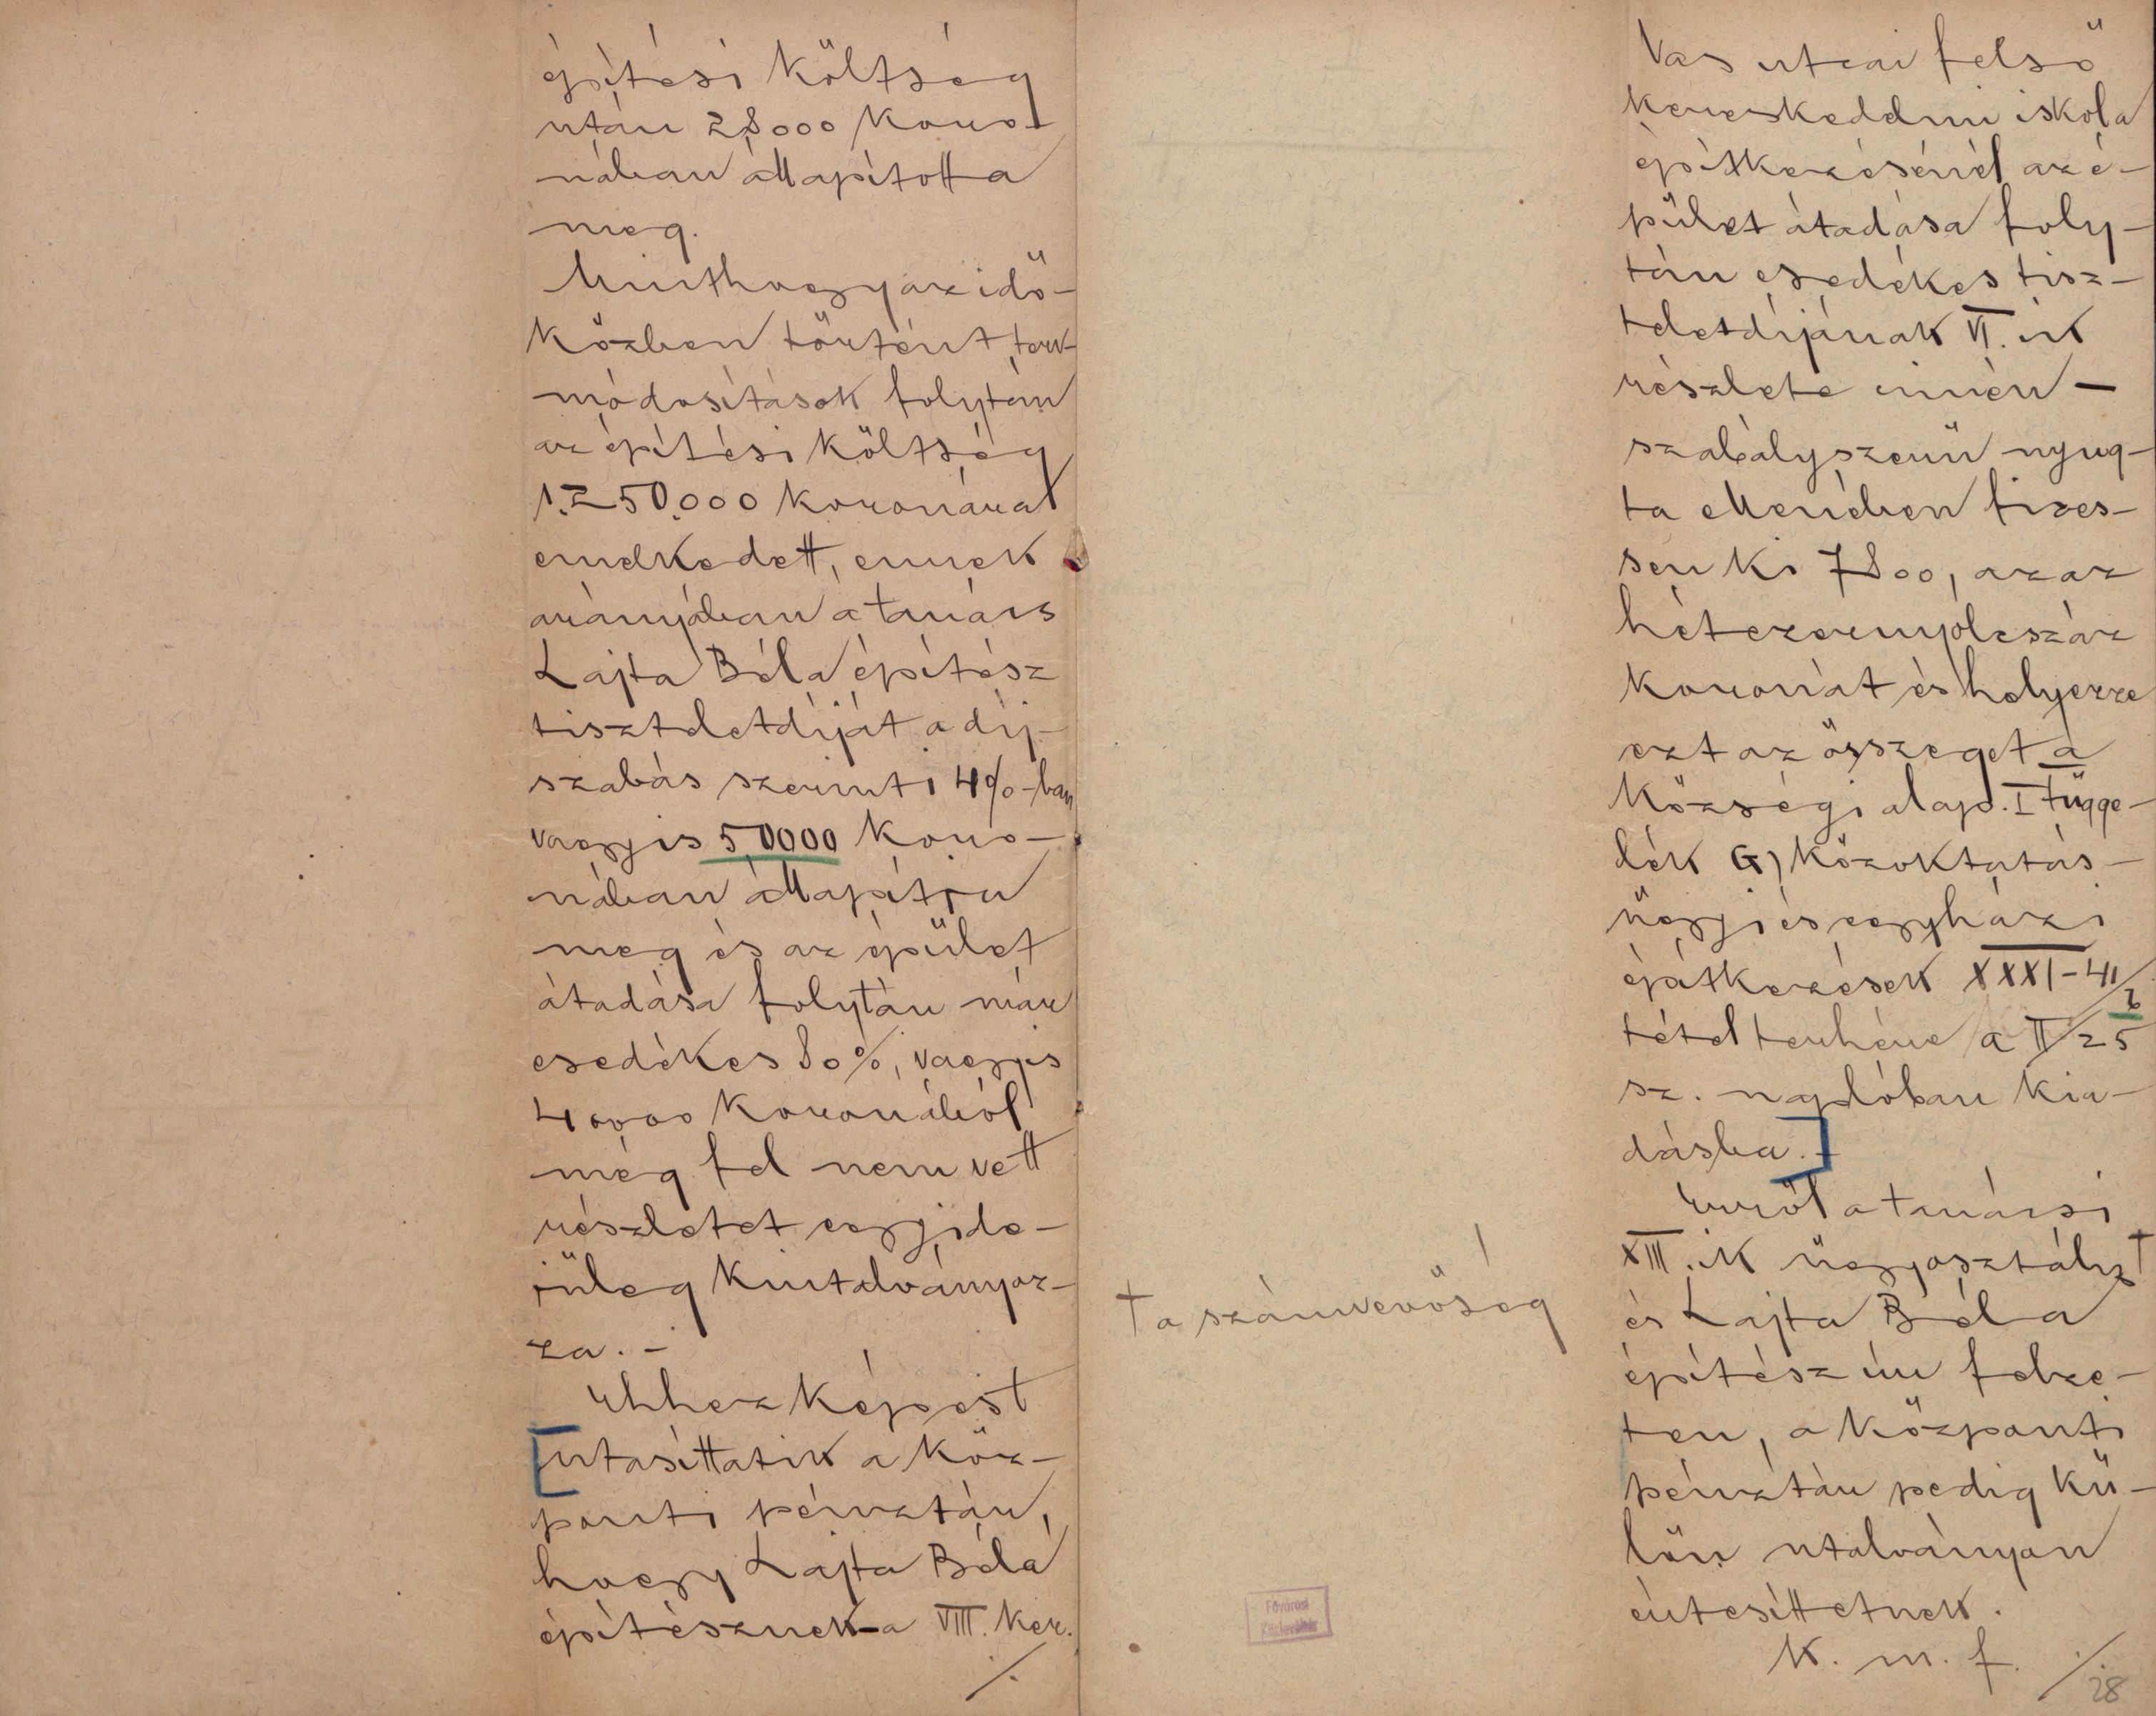 építési költség
után 28000 koro-
nában állapította
meg.
Minthogy az idő-
közben történt terv-
módosítások folytán
az építési költség
1.250.000 koronára
emelkedett, ennek
arányában a tanács
Lajta Béla építész
tiszteletdíját a díj-
szabás szerinti 4%-ban
vagyis 50000 koro-
nában állapítja
meg és az épület
átadása folytán már
esedékes 80%, vagyis
40000 koronából
még fel nem vett
részletet egyide-
jüleg kiutalványoz-
za. -
Ehhez képest
utasíttatik a köz-
ponti pénztár,
hogy Lajta Béla
építésznek a VIII. ker.
./.
† a számvevőség
Fővárosi
Közlevéltár
Vas utcai felső
kereskedelmi iskola
építkezésénél az é-
pület átadása foly-
tán esedékes tisz-
teletdíjának VI. ik
részlete címén -
szabályszerű nyug-
ta ellenében fizes-
sen ki 7800, azaz
hétezernyolcszáz
koronát és helyezze
ezt az összeget a
Községi alap. I függe-
lék G) közoktatás-
ügyi és egyházi
építkezések XXXI-41/6
tétel terhére a II/25
sz. naplóban kia-
dásba.
Erről a tanácsi
XIII. ik ügyosztály †
és Lajta Béla
építész úr felze-
ten, a központi
pénztár pedig kü-
lön utalványon
értesíttetnek.
K. m. f.
./.
28